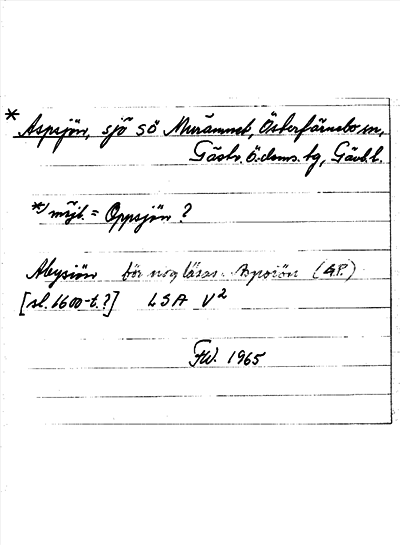 * Aspsjön, sjö sö Muråmnet, Österfärnebo sn,
Gästr. ö. doms. tg, Gävl. l.
*) möjl. = Oppsjön ?
Abysiön bör nog läsas: Aspsiön (G.P.)
[sl. 1600-t.?] LSA V2
FW. 1965